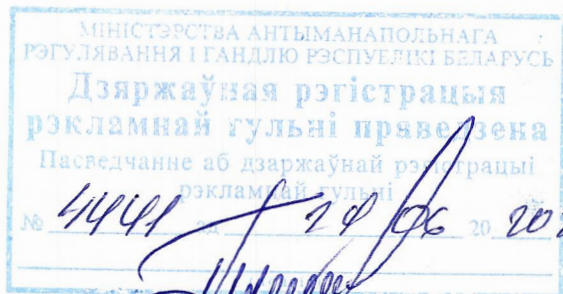 МІНІСТЭРСТВА АНТЫМАНАПОЛЬНАГА
РЭГУЛЯВАННЯ І ГАНДЛЮ РЭСПУБЛІКІ БЕЛАРУСЬ
Дзяржаўная рэгістрацыя
рэкламнай гульні праведзена
Пасведчанне аб дзяржаўнай рэгістрацыі
рэкламнай гульні
№ 4441 ад 06 20